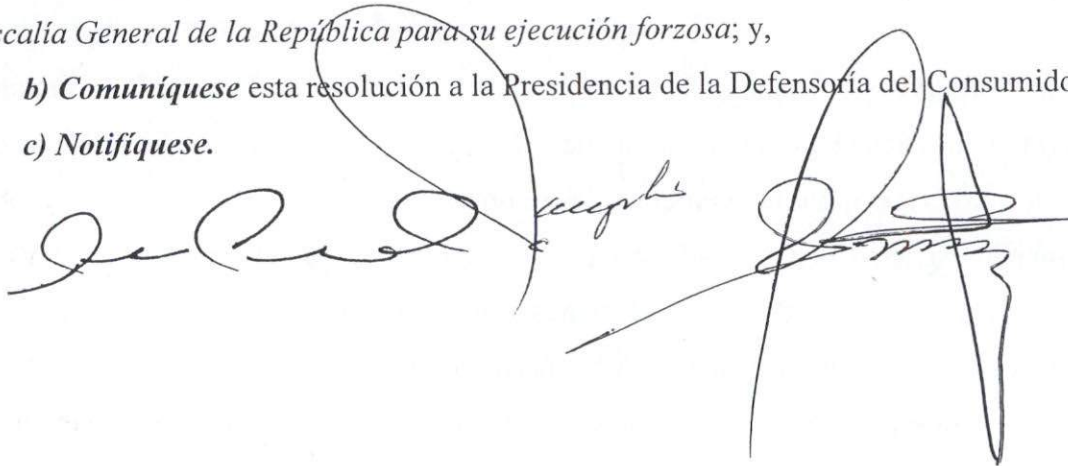 scalía General de la República para su ejecución forzosa; y,
b) Comuníquese esta resolución a la Presidencia de la Defensoría del Consumido
c) Notifíquese.